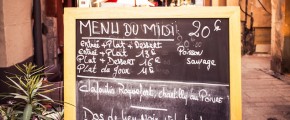 MENU DU MIDI 20€
Entrée + Plat + Dessert
Entrée + Plat 13€
Plat + Dessert 16€
Plat du jour 11€
Poisson
Sauvage
Clafoutis Roquefort, chantilly au Poivre
Dos de lieu Noir